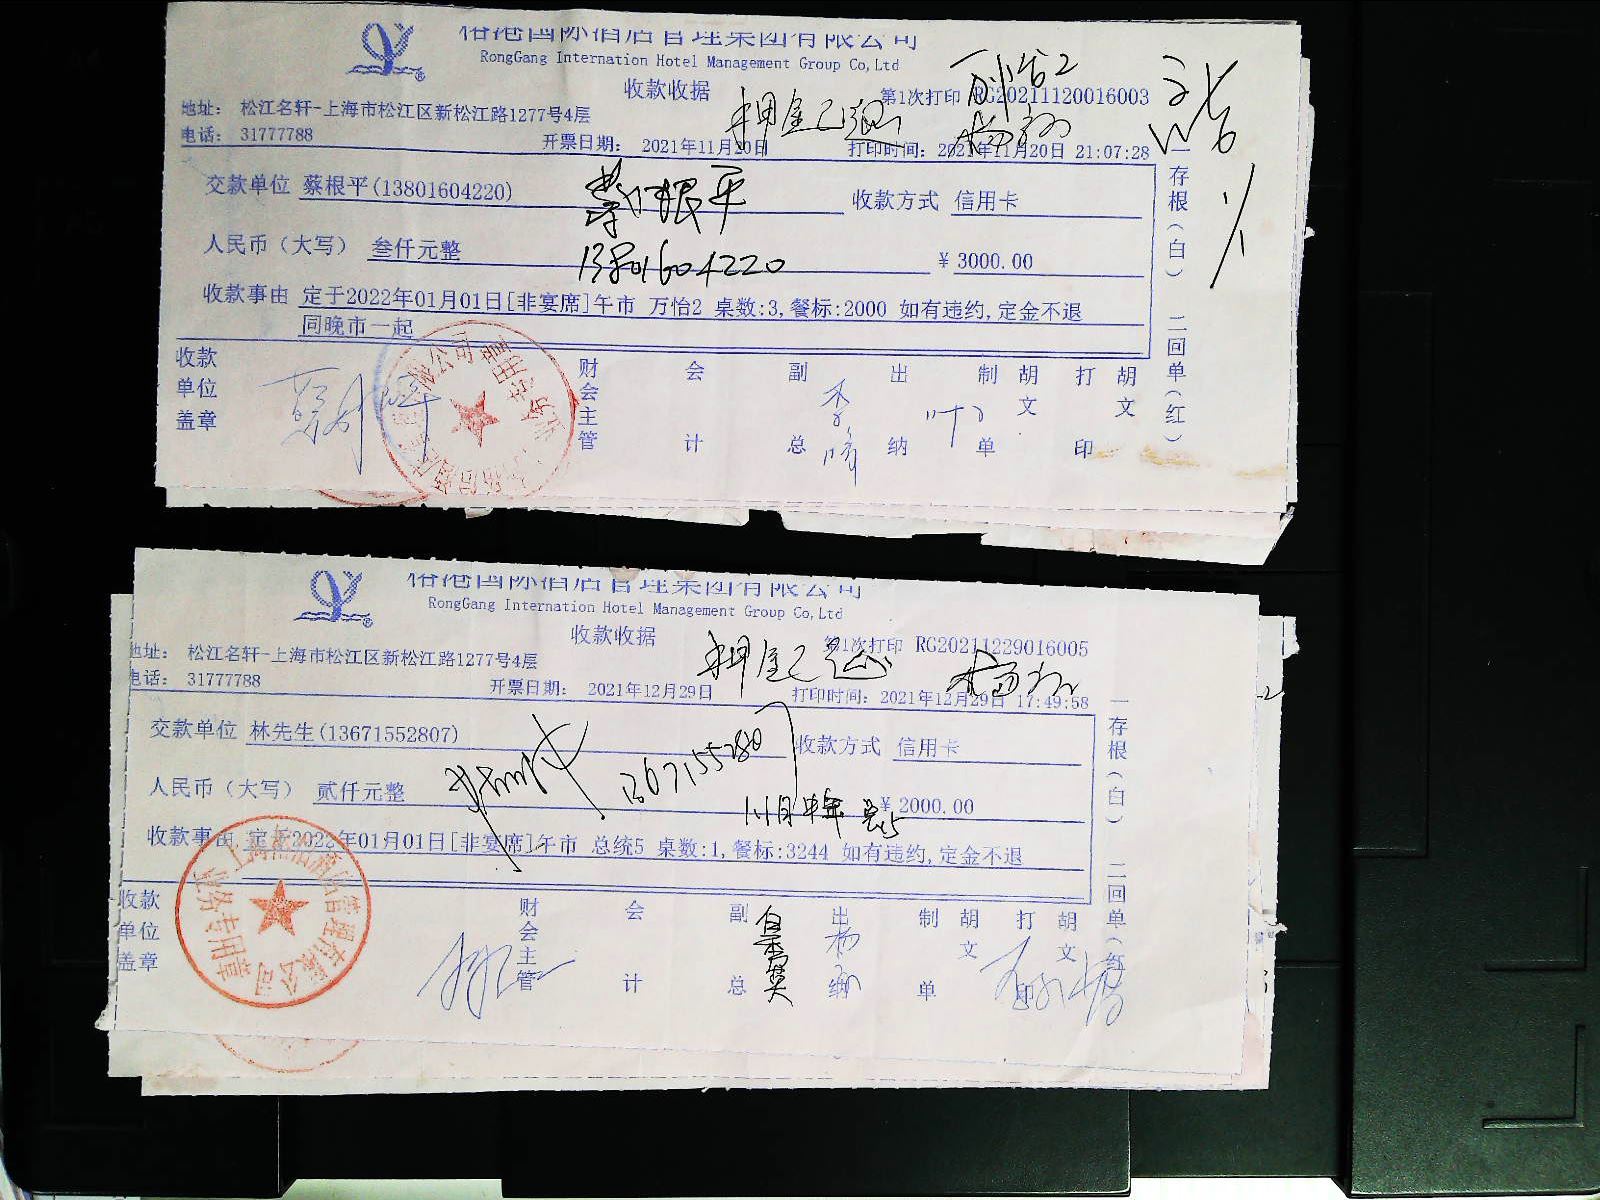 裕港国际酒店管理集团有限公司
RongGang Internation Hotel Management Group Co,Ltd
收款收据
第1次打印 RG20211120016003
地址: 松江名轩-上海市松江区新松江路1277号4层
押金已退
电话: 31777788
开票日期: 2021年11月20日
打印时间: 2021年11月20日 21:07:28
交款单位 蔡根平(13801604220)
蔡根平
收款方式 信用卡
人民币(大写) 叁仟元整
13801604220
¥ 3000.00
收款事由 定于2022年01月01日[非宴席]午市 万怡2 桌数:3,餐标:2000 如有违约,定金不退
同晚市一起
一存根(白) 二回单(红)
收款单位盖章
财会主管
会计
副总
出纳
制单
胡文
打印
胡文
裕港国际酒店管理集团有限公司
RongGang Internation Hotel Management Group Co,Ltd
收款收据
第1次打印 RG20211229016005
地址: 松江名轩-上海市松江区新松江路1277号4层
押金已退
电话: 31777788
开票日期: 2021年12月29日
打印时间: 2021年12月29日 17:49:58
交款单位 林先生(13671552807)
13671552807
收款方式 信用卡
人民币(大写) 贰仟元整
¥ 2000.00
收款事由 定于2022年01月01日[非宴席]午市 总统5 桌数:1,餐标:3244 如有违约,定金不退
一存根(白) 二回单(红)
收款单位盖章
业务专用章
财会主管
会计
副总
出纳
制单
胡文
打印
胡文